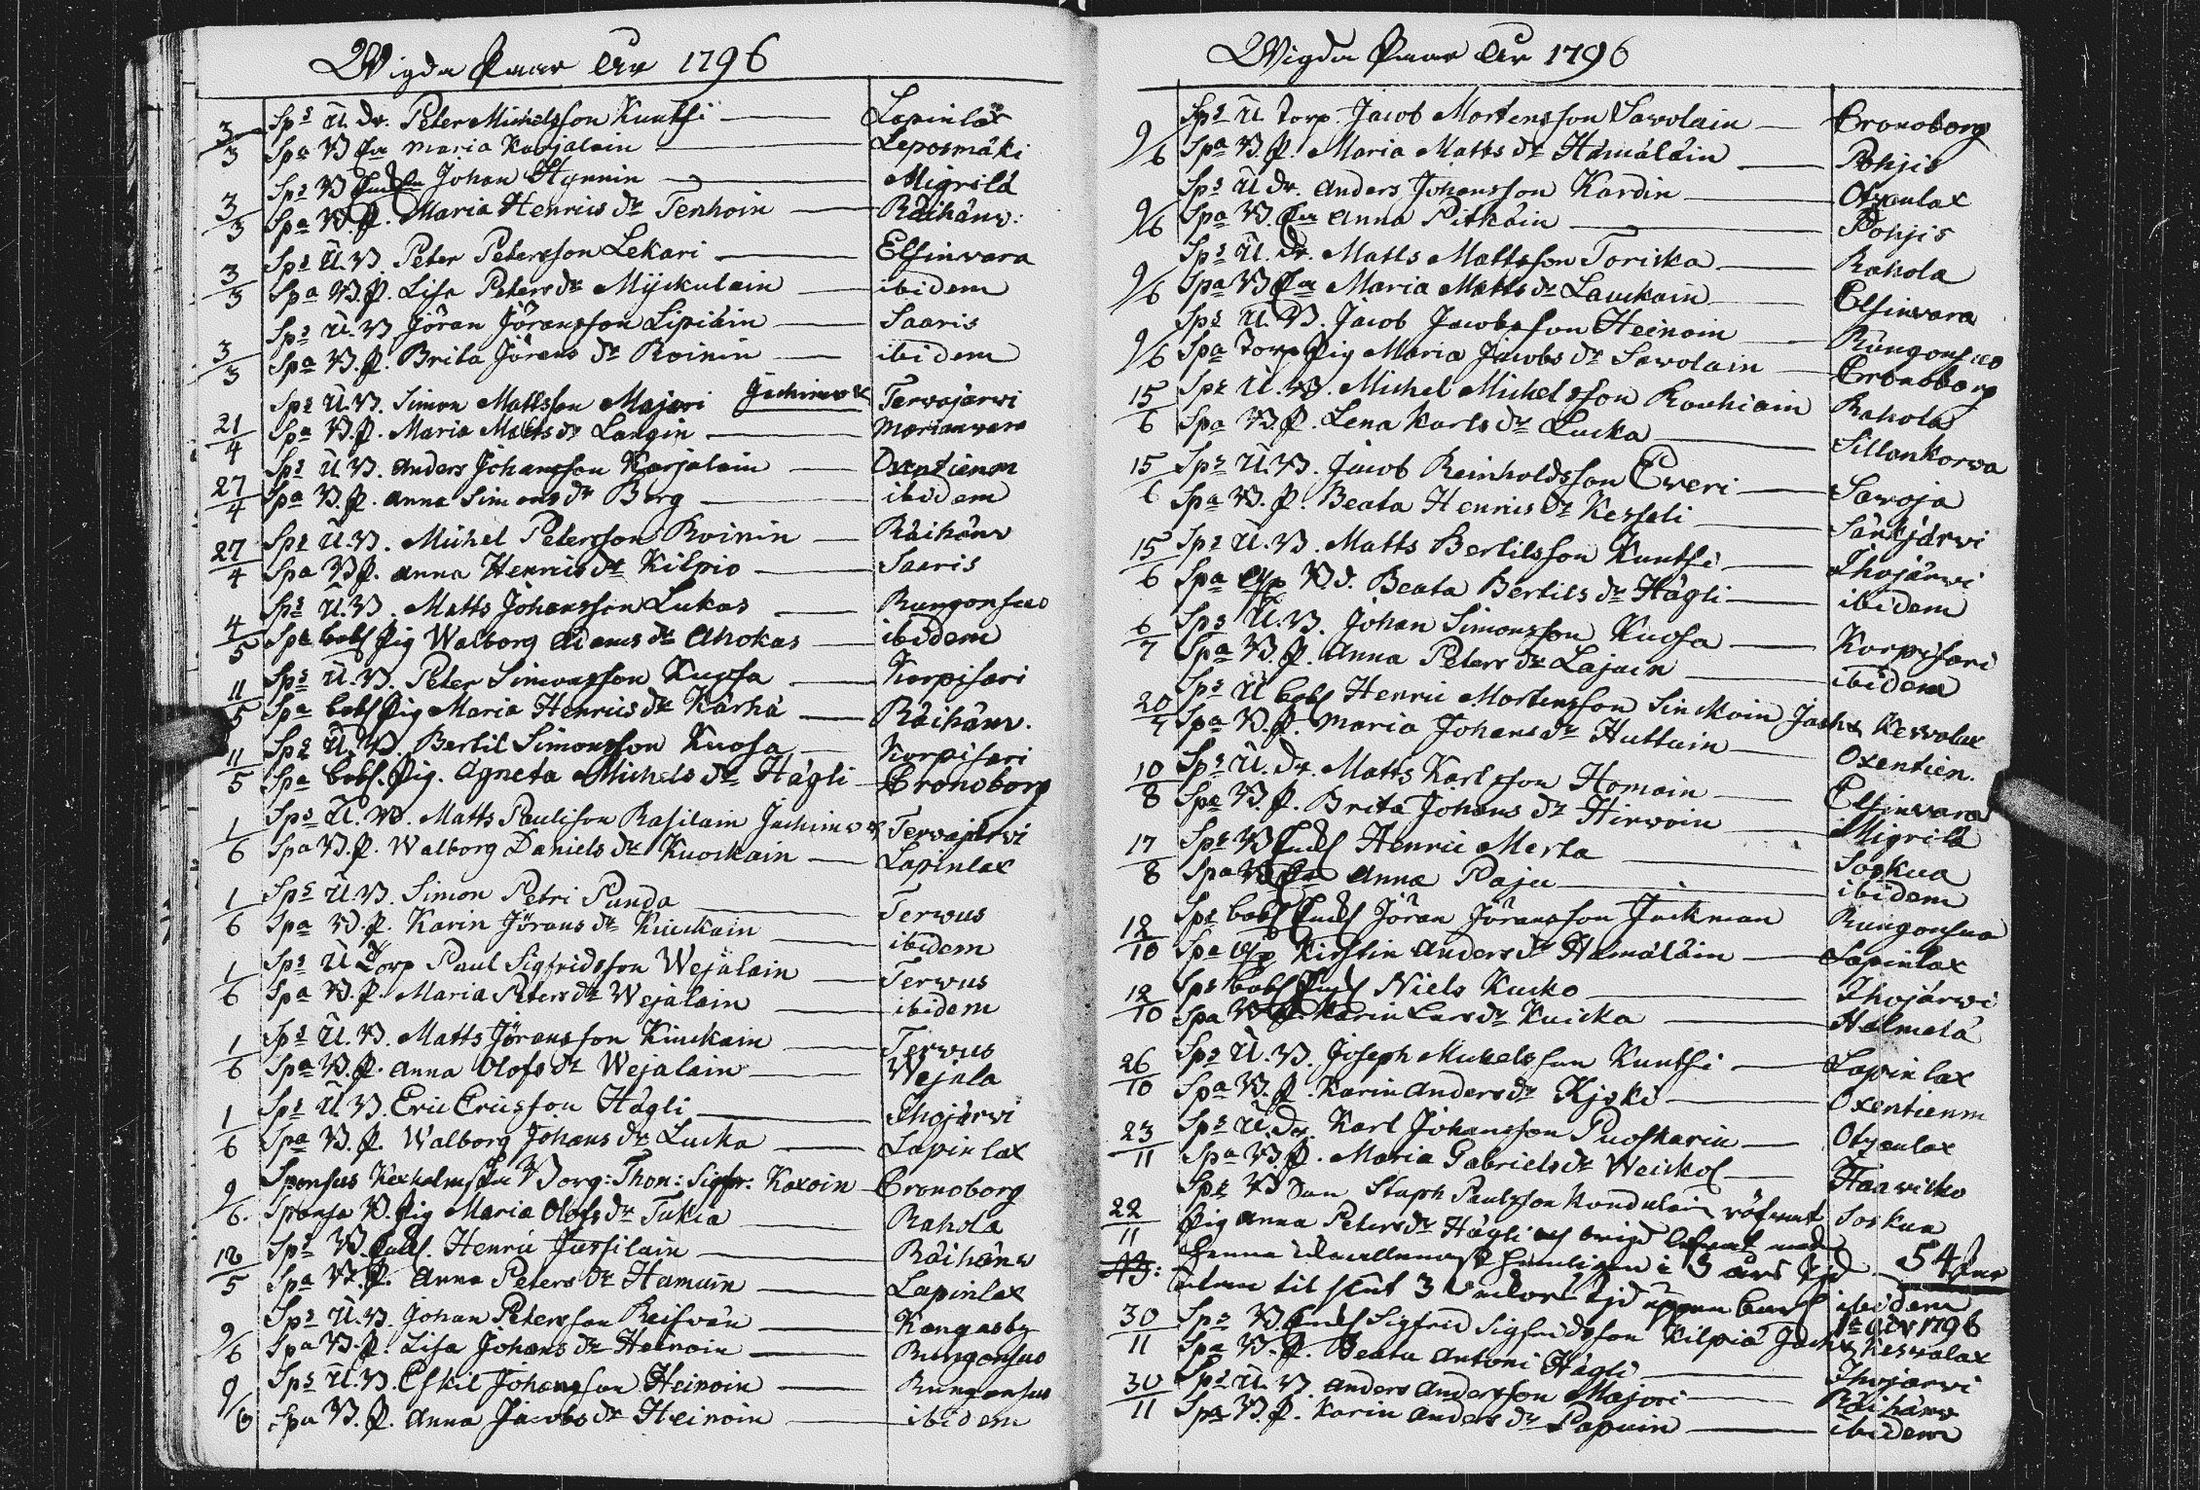 Wigda Paar År 1796
3/3 Sps U. Dr. Peter Michelsson Kuntsi — Lapinlax
Spa W Ea Maria Karjalain — Leposmäki
3/3 Sps W Johan Hynnin — Migrilä
Spa W. P. Maria Henrics dr Tenhoin — Räihänv:
3/3 Sps U. W Peter Petersson Lekari — Elsinwara
Spa W. P. Lisa Peters dr Myckulain — ibidem
3/3 Sps U. W Jöran Jöransson Lipiäin — Saaris
Spa W. P. Brita Jörans dr Roinin — ibidem
21/4 Sps U. W. Simon Mattsson Majori Jachimv Terwajärwi
Spa W. P. Maria Matts dr Langin — Marianvara
27/4 Sps U. W. Anders Johansson Karjalain — Oxentienm
Spa W. P. Anna Simons dr Borg — ibidem
27/4 Sps U. W. Michel Petersson Roinin — Räihänv
Spa W P. Anna Henrics dr Kilpio — Saaris
4/5 Sps U. W. Matts Johansson Lukas — Rungonsuo
Spa bobs Pig Walborg Adams dr Ahokas — ibidem
11/5 Sps U. W. Peter Simonsson Kuosa — Korpisari
Spa bobs Pig Maria Henrics dr Kärhä — Räihänv.
11/5 Sps U. W. Bertil Simonsson Kuosa — Korpisari
Spa bobs. Pig. Agneta Michels dr Hägli — Cronoborg
1/6 Sps U. W. Matts Paulison Rasilain Jachimv Terwajärwi
Spa W. P. Walborg Daniels dr Kuockain — Lapinlax
1/6 Sps U. W. Simon Petri Punda — Terwus
Spa W. P. Karin Jörans dr Kinckain — ibidem
1/6 Sps U Torp Paul Sigfridsson Wejälain — Terwus
Spa W. P. Maria Peters dr Wejälain — ibidem
1/6 Sps U. W. Matts Jöransson Kinckain — Terwus
Spa W. P. Anna Olofs dr Wejälain — Wejala
1/6 Sps U W. Eric Ericsson Hägli — Ihojärwi
Spa W. P. Walborg Johans dr Lucka — Lapinlax
9/6. Sponsus Kexholmska Borg: Thom: Sigfr. Koxoin — Cronoborg
Sponsa W. Pig Maria Olofs dr Tukia — Rahola
12/5 Sps W. Henric Jussilain — Räihänv
Spa W. P. Anna Peters dr Hamuin — Lapinlax
9/6 Sps U. W. Johan Petersson Reiswän — Kangasby
Spa W. P. Lisa Johans dr Heinoin — Rungonsuo
9/6 Sps U. W. Eskil Johansson Heinoin — Rungonsuo
Spa W. P. Anna Jacobs dr Heinoin — ibidem
Wigda Paar År 1796
9/6 Sps U Torp. Jacob Mortensson Sawolain — Cronoborg
Spa W. P. Maria Matts dr Hämäläin — Pohjis
9/6 Sps U dr. Anders Johansson Kardin — Otzanlax
Spa W. Ea Anna Pitkäin — Pohjis
9/6 Sps U. Dr. Matts Mattsson Toricka — Rahola
Spa W Ea Maria Matts dr Lauckain — Elsinwara
9/6 Sps U. W. Jacob Jacobsson Heinoin — Rungonsuo
Spa Torp Pig Maria Jacobs dr Sawolain — Cronoborg
15/6 Sps U. W. Michel Michelsson Rouhiain Rahola
Spa W. P. Lena Karls dr Lucka — Sillankorwa
15/6 Sps U. W. Jacob Reinholdsson Eweri — Sawoja
Spa W. P. Beata Henrics dr Kesseli — Särkjärwi
15/6 Sps U. W. Matts Bertilsson Kuntsi — Ihojärwi
Spa W d. Beata Bertils dr Hägli — ibidem
6/7 Sps U. W. Johan Simonsson Kuosa — Korpisari
Spa W. P. Anna Peters dr Lajain — ibidem
20/7 Sps U bobs Henric Mortensson Sinckoin Jachv Keswalax
Spa W. P. Maria Johans dr Huttuin — Oxentien.
10/8 Sps U. Dr. Matts Karlsson Homain — Elsinwara
Spa W. P. Brita Johans dr Hirwoin — Migrilä
17/8 Sps W Henric Merta — Soskua
Spa W Ea Anna Paju — ibidem
12/10 Sps bobs Jöran Jöransson Jackman Rungonsuo
Spa Kirstin Anders dr Hämäläin — Lapinlax
12/10 Sps bobs Niels Kucko — Ihojärwi
Spa W P. Karin Lars dr Kuicka — Helmelä
26/10 Sps U. W. Joseph Mickelsson Kuntsi — Lapinlax
Spa W. P. Karin Anders dr Kiiski — Oxentienm
23/11 Sps U Dr Karl Johansson Puoskarin — Otzanlax
Spa W. P. Maria Gabriels dr Weickol — Haawisko
22/11 Sps W Dan Staph Paulsson Kondulain Soskua
Pig Anna Peters dr Hägli
NB: 3 års tid 54 Paar
til slut 3 Veckors tid ibidem
År 1796
30/11 Sps W Sigfrid Sigfridsson Kilpiä Jachv Keswalax
Spa W. P. Beata Antoni Hägli — Ihojärwi
30/11 Sps U. W. Anders Andersson Majori — Räihänv
Spa W. P. Karin Anders dr Papuin — ibidem